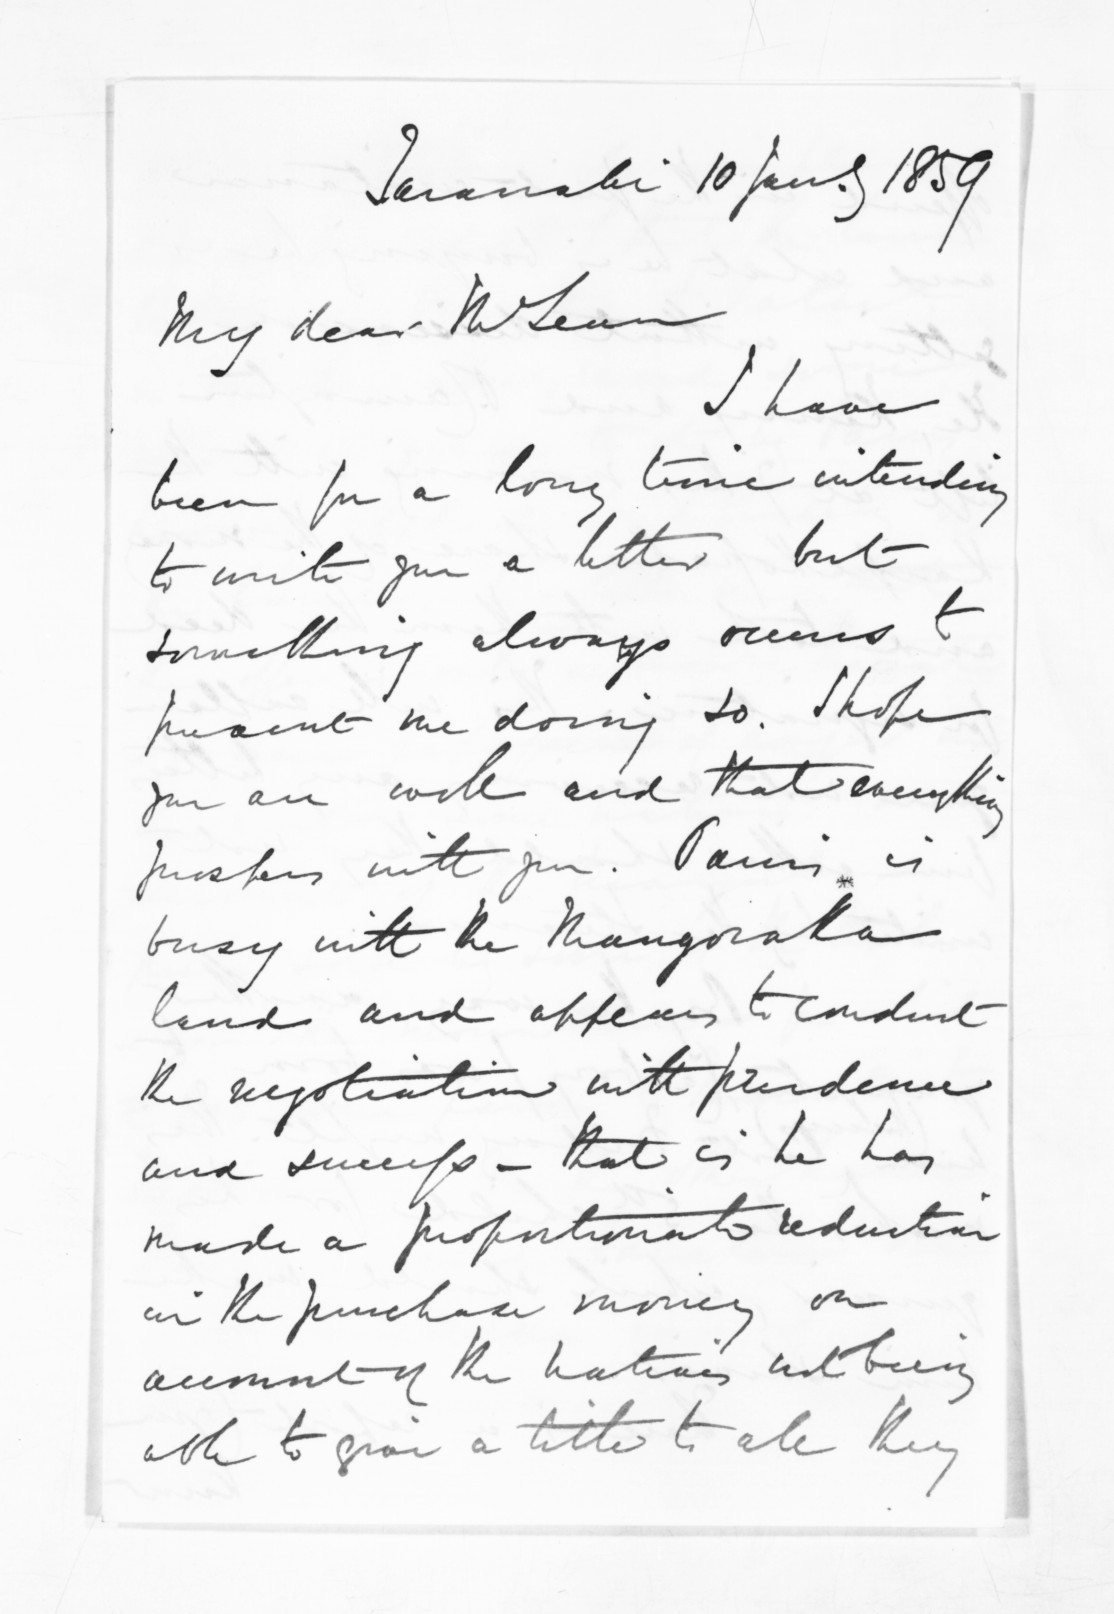 Taranaki 10 Jany 1859
My dear McLean
I have
been for a long time intending
to write you a letter but
something always occurs to
prevent me doing so. I hope
you are well and that everything
prospers with you. Parris is
busy with the Mangoraka
land and appears to conduct
the negotiation with prudence
and success - that is he has
made a proportionate reduction
in the purchase money on
account of the natives not being
able to give a title to all they